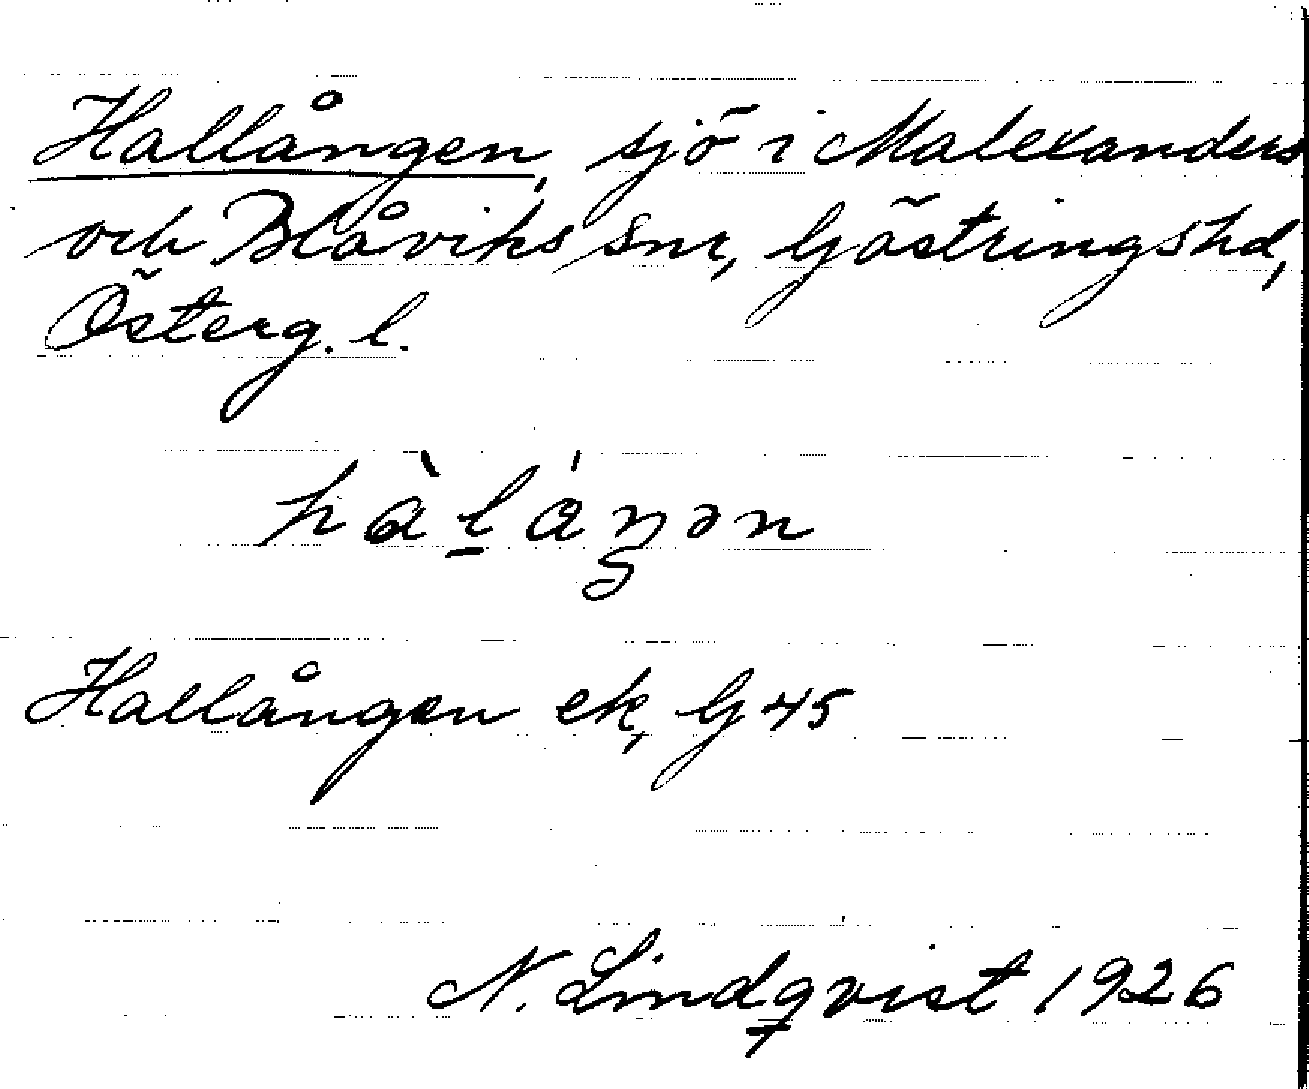 Hallången, sjö i Malexanders
och Blåviks snr, Göstrings hd,
Österg. l.
hàláŋən
Hallången ek, G 45
N. Lindqvist 1926